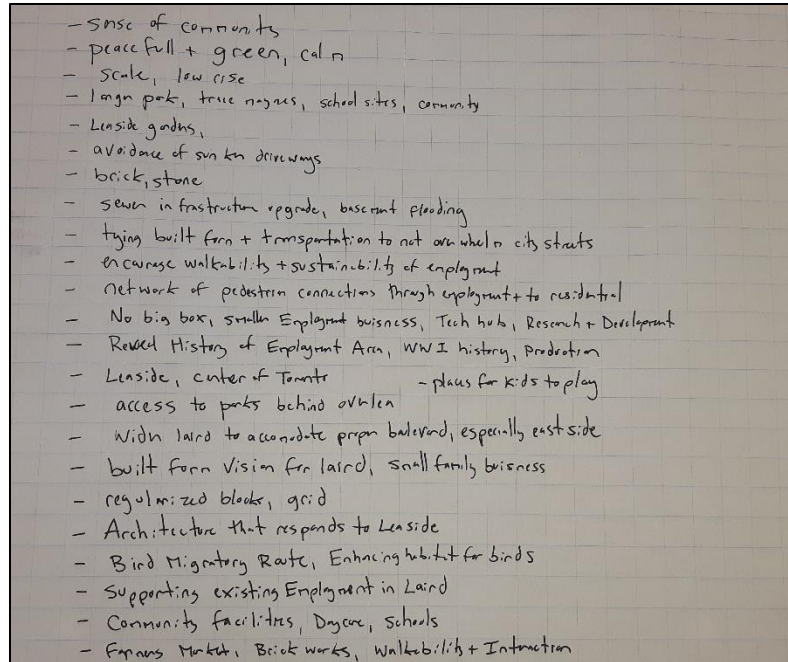 - sense of community
- peacefull + green, calm
- scale, low rise
- larger park, trace names, school sites, community
- Leaside gardens,
- avoidance of sunken driveways
- brick, stone
- sewer infrastructure upgrade, basement flooding
- tying built form + transportation to not overwhelm city streets
- encourage walkability + sustainability of employment
- network of pedestrian connections through employment + to residential
- No big box, smaller Employment buisness, Tech hub, Research + Development
- History of Employment Area, WWI history, Production
- Leaside, center of Toronto - places for kids to play
- access to parks behind overlea
- widen laird to accomodate proper boulevard, especially east side
- built form Vision for laird, small family buisness
- regularized blocks, grid
- Architecture that responds to Leaside
- Bird Migratory Route, Enhancing habitat for birds
- Supporting existing Employment in Laird
- Community facilities, Daycare, Schools
- Farmers Market, Brick works, Walkability + Interaction